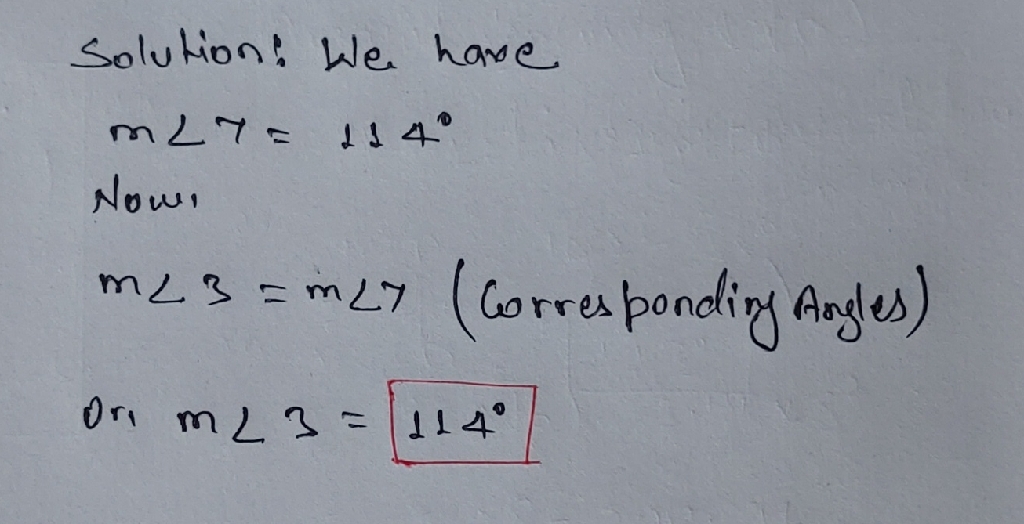 Solution: We have
m∠7 = 114°
Now,
m∠3 = m∠7 (Corresponding Angles)
Or, m∠3 = 114°